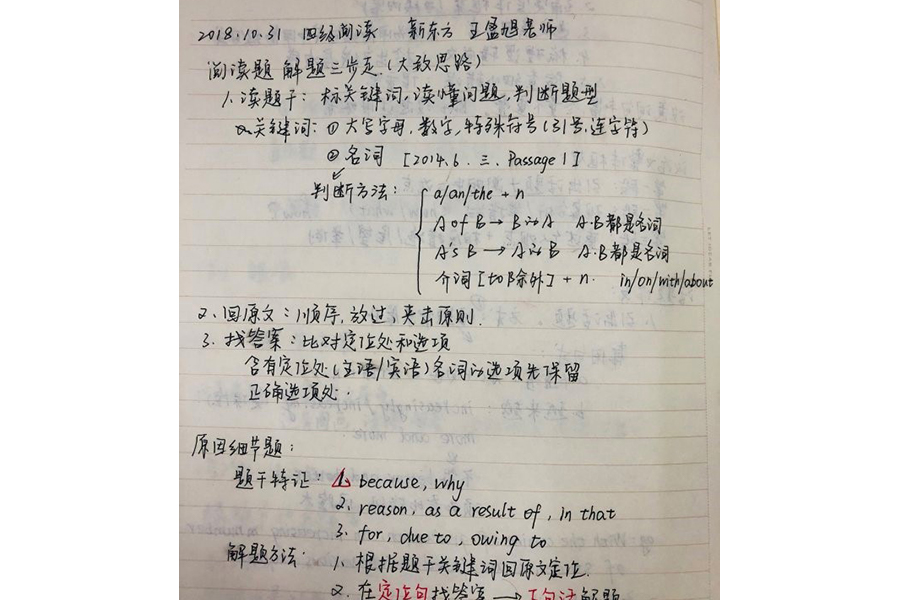 2018.10.31 四级阅读 新东方 王盛旭老师
阅读题 解题三步走.(大致思路)
1.读题干: 标关键词,读懂问题,判断题型
关键词: ①大写字母,数字,特殊符号(引号,连字符)
②名词 [2014.6.三.Passage 1]
判断方法: a/an/the + n
A of B → B的A A.B都是名词
A's B → A的B A.B都是名词
介词[to除外] + n. in/on/with/about
2.回原文:顺序,放过,夹击原则.
3.找答案:比对定位处和选项
含有定位处(主语/宾语)名词的选项先保留
正确选项处.
原因细节题:
题干特证: 1. because, why
2. reason, as a result of, in that
3. for, due to, owing to
解题方法: 1.根据题干关键词回原文定位.
2.在定位句找答案 → 下句话解题